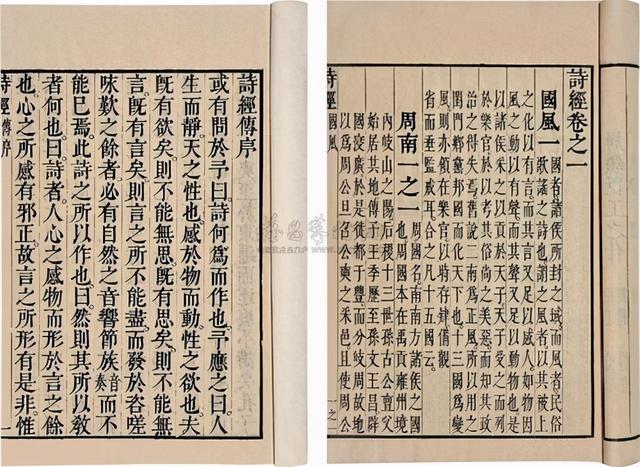 詩經傳序
或有問於予曰詩何爲而作也予應之曰人
生而靜天之性也感於物而動性之欲也夫
既有欲矣則不能無思既有思矣則不能無
言既有言矣則言之所不能盡而發於咨嗟
咏歎之餘者必有自然之音響節族音奏而不
能已焉此詩之所以作也曰然則其所以教
者何也曰詩者人心之感物而形於言之餘
也心之所感有邪正故言之所形有是非惟
詩經 傳序 一
詩經卷之一
國風一
國者諸侯所封之域而風者民俗
歌謠之詩也謂之風者以其被上
之化以有言而其言又足以感人如物因
風之動以有聲而其聲又足以動物也是
以諸侯采之以貢於天子天子受之而列
於樂官於以考其俗尚之美惡而知其政
治之得失焉舊說二南爲正風所以用之
閨門鄉黨邦國而化天下也十三國爲變
風則亦領在樂官以時存肄備觀
省而垂監戒耳合之凡十五國云
周南一之一
周國名南南方諸侯之國
也周國本在禹貢雍州境
內岐山之陽后稷十三世孫古公亶父
始居其地傳子王季歷至孫文王昌辟
國寖廣於是徙都于豐而分岐周故地
以爲周公旦召公奭之采邑且使周公
詩經 國風